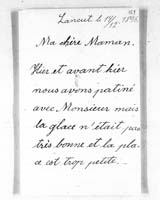 Lancut le 19/12 1896
Ma chère Maman.
Hier et avant hier
nous avons patiné
avec Monsieur mais
la glace n'était pas
très bonne et la pla-
ce est trop petite. —